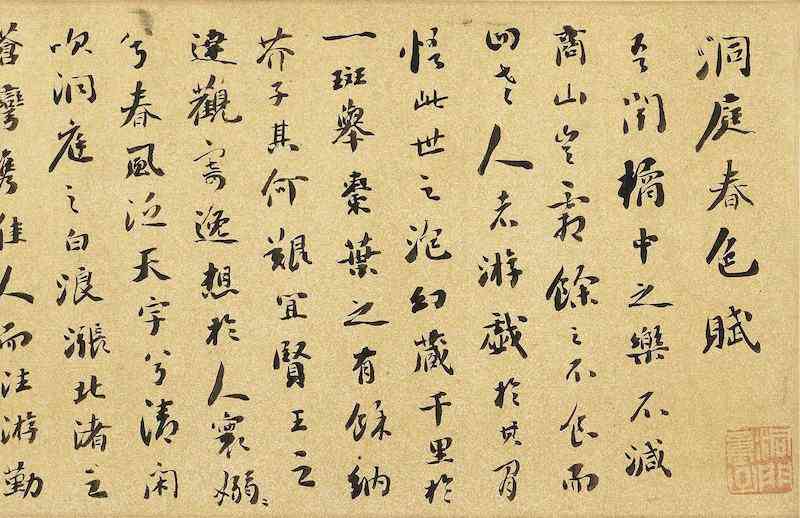 洞庭春色賦
吾聞橘中之樂不減
商山豈霜餘之不食而
四老人者游戲於其間
悟此世之泡幻藏千里於
一斑舉棗葉之有餘納
芥子其何艱宜賢王之
達觀寄逸想於人寰嫋々
兮春風泛天宇兮清閑
吹洞庭之白浪漲北渚之
蒼灣攜佳人而往游勤